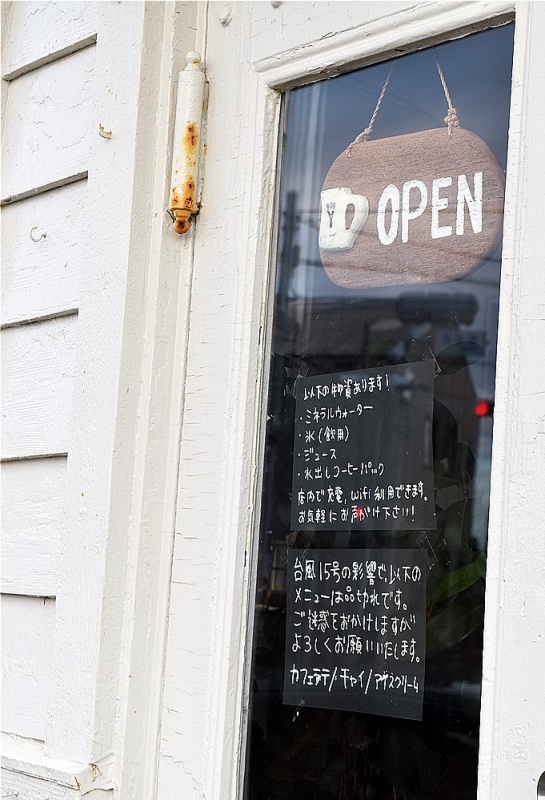 OPEN
以下の物資あります!
・ミネラルウォーター
・氷(飲用)
・ジュース
・水出しコーヒーパック
店内で充電、wifi利用できます。
お気軽にお声がけ下さい!
台風15号の影響で、以下の
メニューは品切れです。
ご迷惑をおかけしますが
よろしくお願いいたします。
カフェラテ/チャイ/アイスクリーム